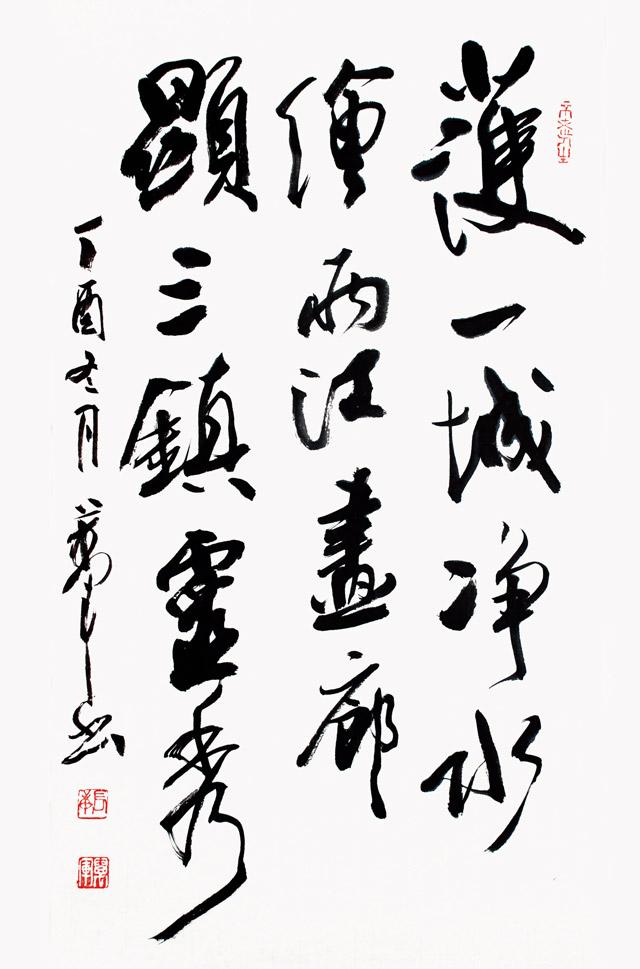 護一城净水
繪兩江畫廊
顯三鎮靈秀
丁酉冬月萬